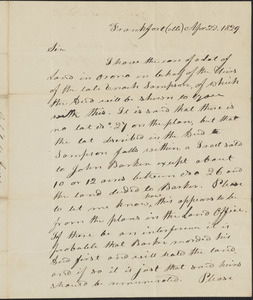 Frankfort (Me) Apr. 22. 1839
Sir
I have the care of a lot of
Land in Orono in behalf of the Heirs
of the late Enoch Sampson, of which
the Deed will be shown to you
with this. It is said that there is
no lot No 27 on the plan, but that
the lot described in the Deed to
Sampson falls within a Lot sold
to John Barker except about
10 or 12 acres between No 26 and
the land deeded to Barker. Please
to let me know, how this appears to be
from the plans in the Land Office.
If there be an interference it is
probable that Barker recorded his
Deed first and will hold the land,
and if so it is just that said heirs
should be remunerated. Please